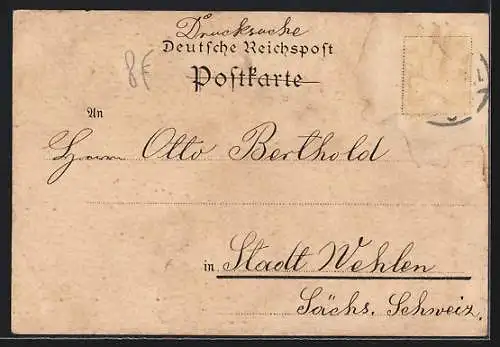 Drucksache
Deutsche Reichspost
Postkarte
8€
An
Herrn Otto Berthold
in Stadt Wehlen
Sächs. Schweiz.